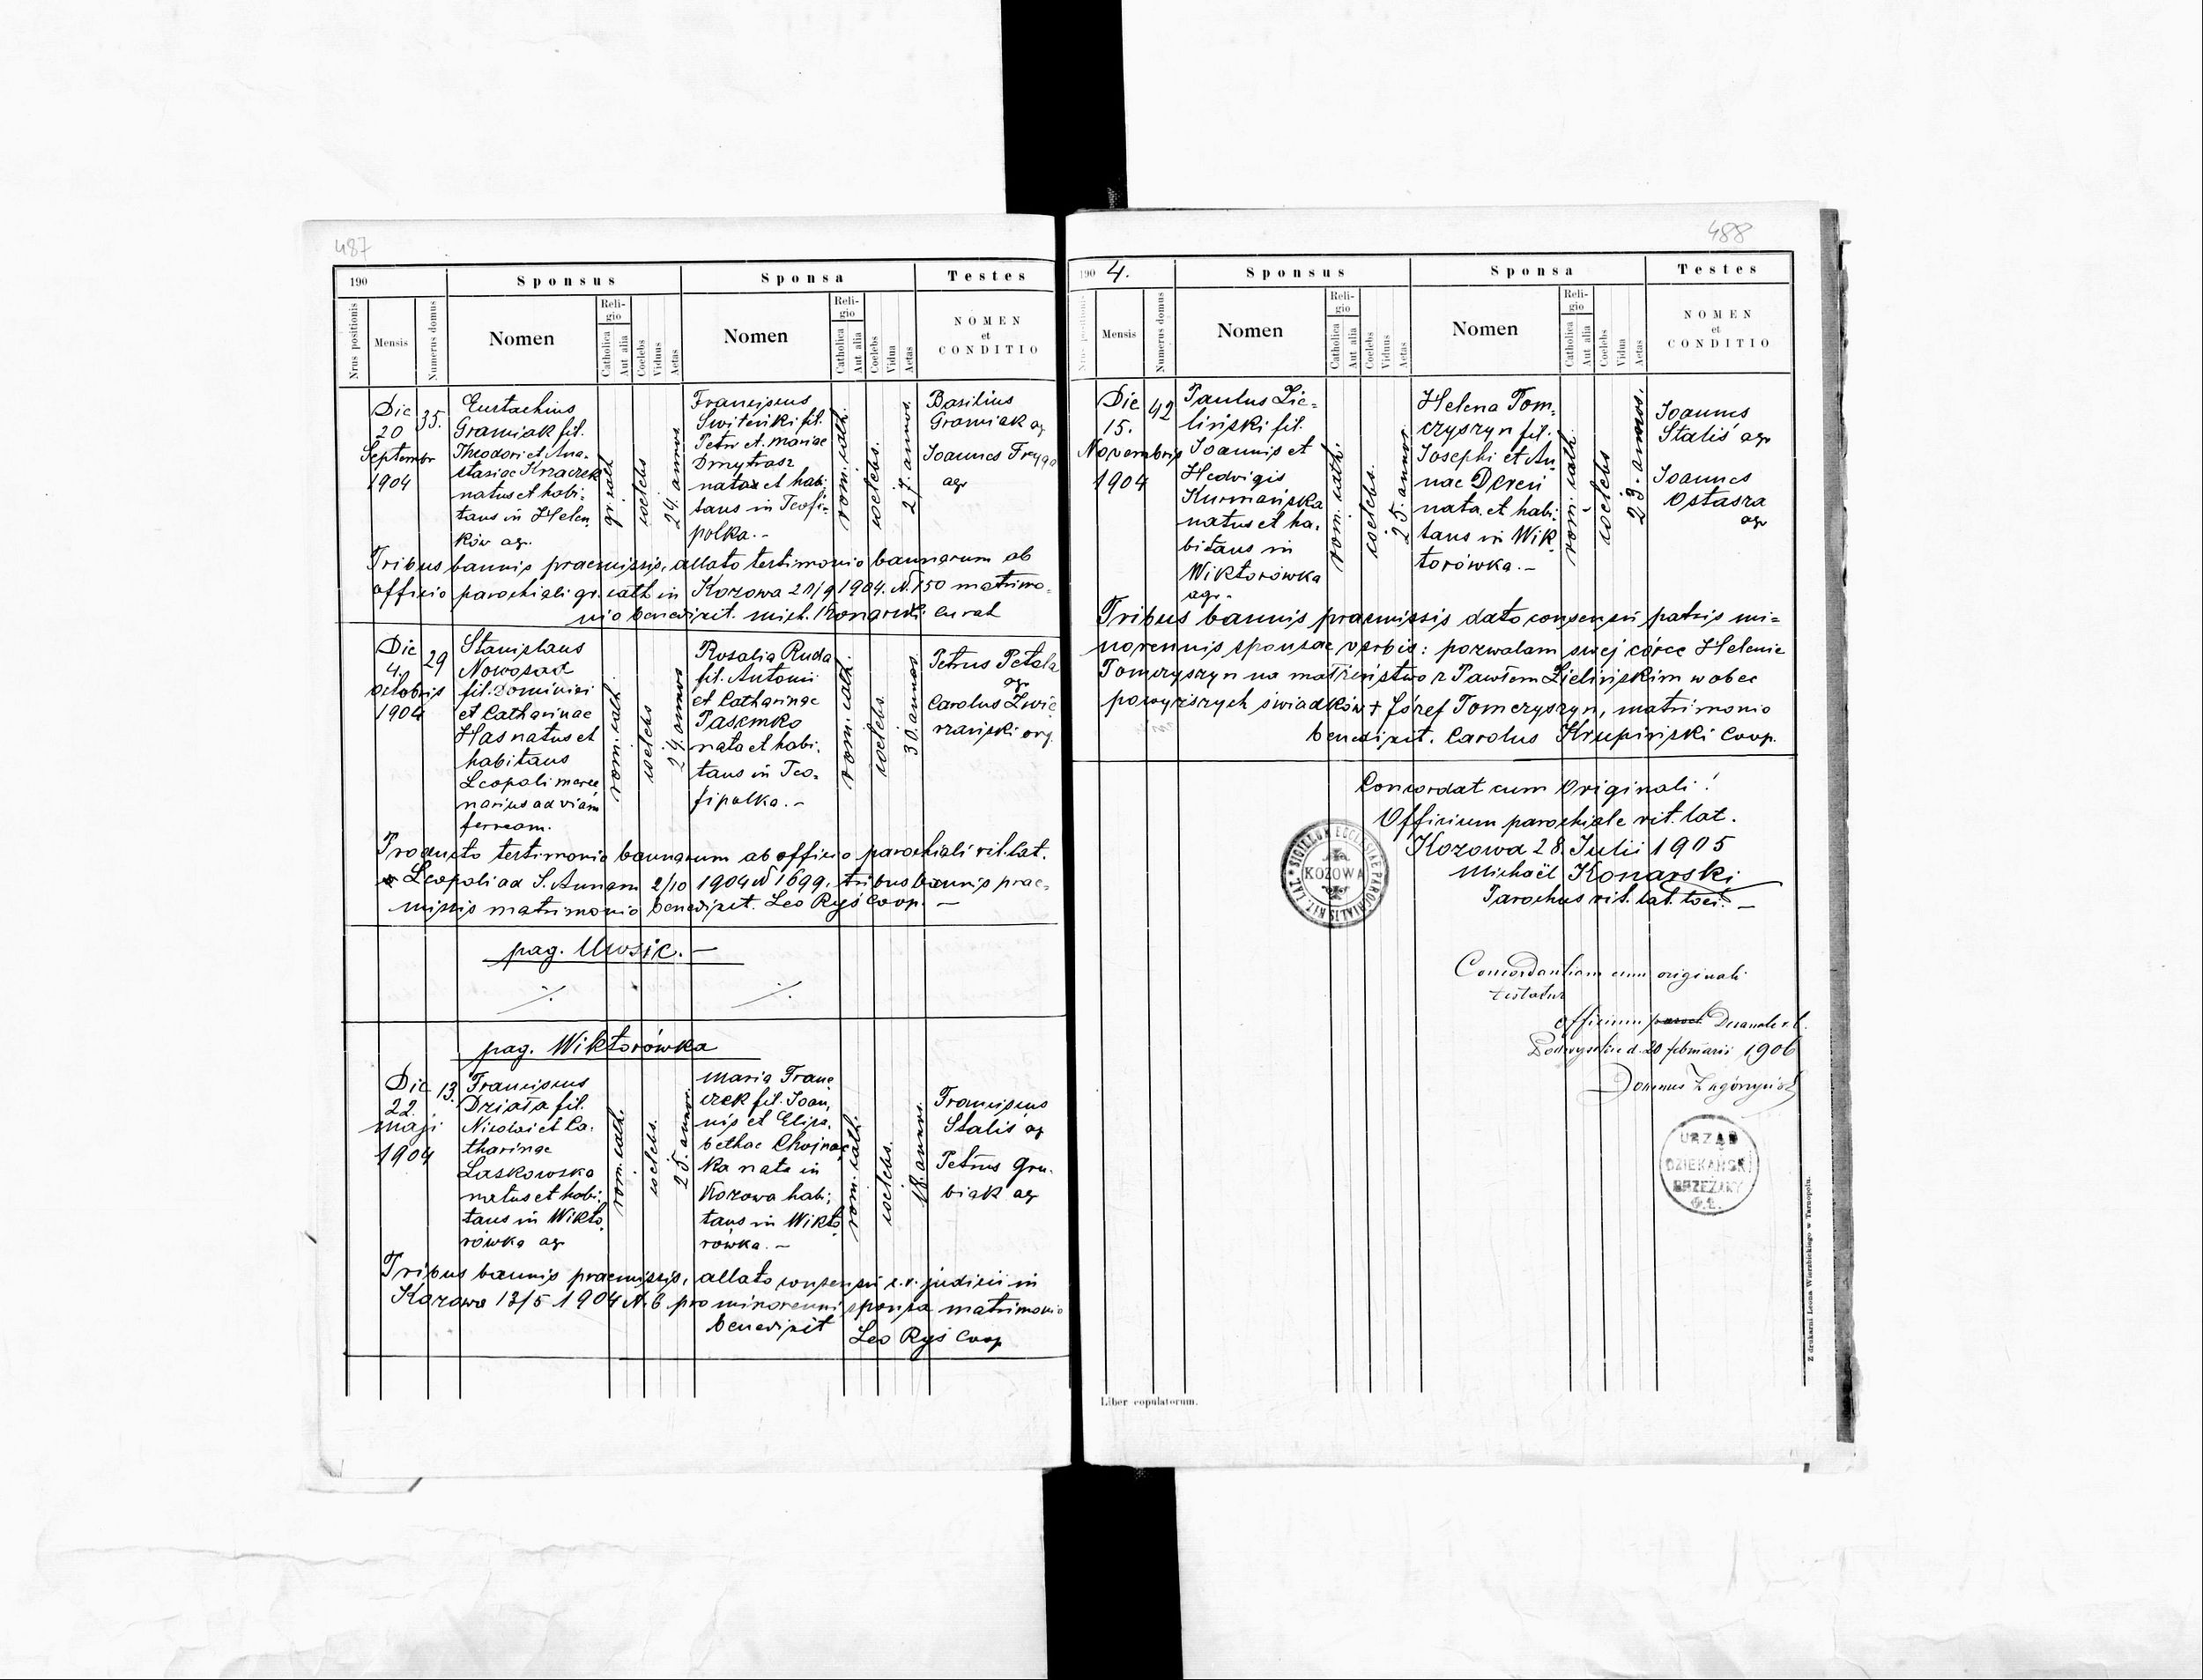 487
190
Sponsus
Sponsa
Testes
Nrus positionis
Mensis
Numerus domus
Nomen
Religio
Catholica
Aut alia
Coelebs
Viduus
Aetas
Nomen
Religio
Catholica
Aut alia
Coelebs
Vidua
Aetas
NOMEN
et
CONDITIO
Die
20
Septembr
1904
35.
Eustachius
Gramiak fil.
Theodori et Ana-
stasiae Krzaczek
natus et habi-
tans in Helen
ków agr.
gr. cath
coelebs
24. annos
Franciscus
Switeński fil.
Petri et Mariae
Dmytrasz
nata et habi
tans in Teofi-
polka.-
rom. cath.
coelebs.
27. annos.
Basilius
Gramiak agr
Joannes Fryga
agr
Tribus bannis praemissis, allato testimonio bannorum ab
officio parochiali gr. cath in Kozowa 20/9 1904. N 150 matrimo-
nio benedixit. Mich. Konarski Curat
Die
4.
Octobris
1904
29
Stanislaus
Nowosad
fil. Dominici
et Catharinae
Has natus et
habitans
Leopoli merce
narius ad viam
ferream.
rom. cath.
coelebs
24. annos
Rosalia Ruda
fil. Antonii
et Catharinae
Pasemko
nata et habi.
tans in Teo-
fipolka.-
rom. cath.
coelebs.
30. annos.
Petrus Petela
agr
Carolus Zwie
rzański org.
Producto testimonio bannorum ab officio parochiali rit. lat.
Leopoli ad S. Annam 2/10 1904 N 1699, tribus bannis prae-
missis matrimonio benedixit. Leo Ryś Coop. -
pag. Uwsie.-
pag. Wiktorówka
Die
22.
Maji
1904
13.
Franciscus
Działa fil.
Nicolai et Ca-
tharinae
Laskowska
natus et habi-
tans in Wikto
rówka agr
rom. cath.
coelebs.
25. annos
Maria Frane
czek fil. Joan,
nis et Elisa.
bethae Chojnac
ka nata in
Kozowa habi;
tans in Wikto
rówka.-
rom. cath.
coelebs.
18. annos.
Franciscus
Staliś agr
Petrus Gru-
biak agr
Tribus bannis praemissis, allato consensu c.r. judicii in
Kozowa 13/5 1904 N. 6 pro minorenni sponsa matrimonio
benedixit Leo Ryś Coop
488
190 4.
Sponsus
Sponsa
Testes
Nrus positionis
Mensis
Numerus domus
Nomen
Religio
Catholica
Aut alia
Coelebs
Viduus
Aetas
Nomen
Religio
Catholica
Aut alia
Coelebs
Vidua
Aetas
NOMEN
et
CONDITIO
Die
15.
Novembris
1904
42
Paulus Zie-
liński fil.
Joannis et
Hedvigis
Kurmańska
natus et ha-
bitans in
Wiktorówka
agr.
rom. cath.
coelebs.
25. annos.
Helena Tom-
czyszyn fil.
Josephi et An
nae Dereń
nata et habi-
tans in Wik-
torówka.-
rom. cath.
coelebs
23. annos.
Joannes
Staliś agr
Joannes
Ostasza
agr
Tribus bannis praemissis dato consensu patris mi-
norennis sponsae verbis: pozwalam swej córce Helenie
Tomczyszyn na małżeństwo z Pawłem Zielińskim wobec
powyższych świadków + Józef Tomczyszyn, matrimonio
benedixit. Carolus Krupiński Coop.
Concordat cum Originali!
Officium parochiale rit. lat.
Kozowa 28. Julii 1905
Michaël Konarski
Parochus rit. lat. loci. -
SIGILLUM ECCLESIAE PAROCHIALIS RIT. LAT.
KOZOWA
Concordantiam cum originali
testatur
Officium Decanale r. l.
d. 20 februarii 1906
URZĄD
DZIEKAŃSKI
BRZEŻANY
O.Ł.
Liber copulatorum.
Z drukarni Leona Wierzbickiego w Tarnopolu.